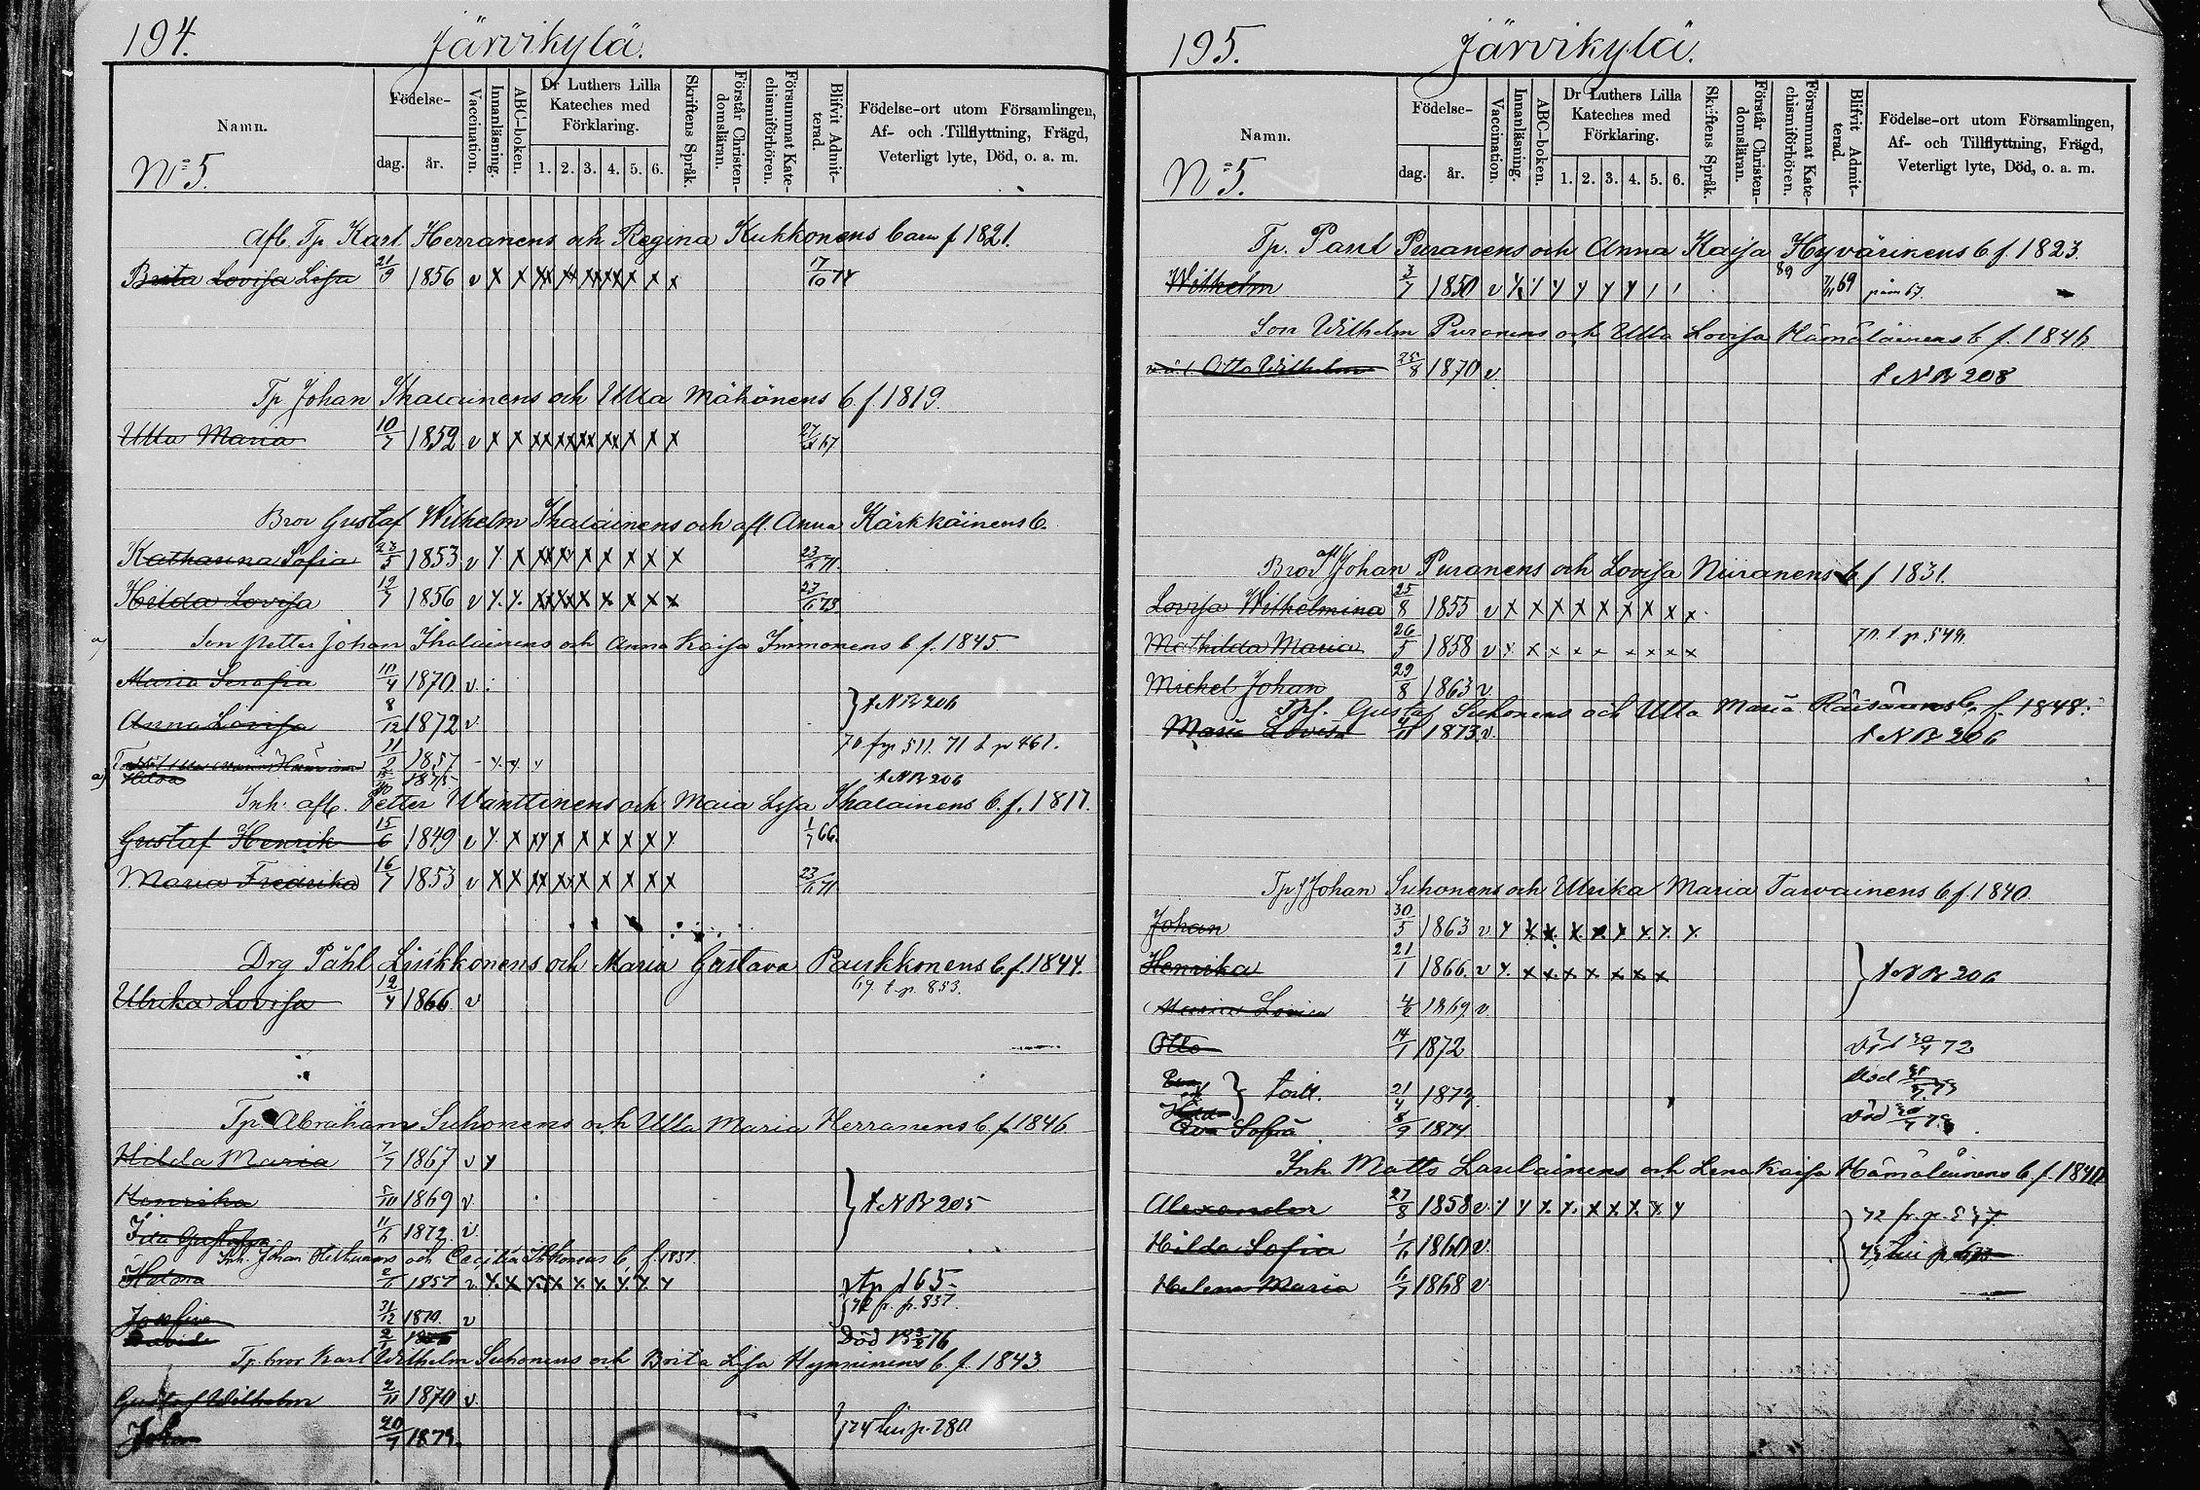 194.
Järvikylä.
Namn.
Födelse-
dag.
år.
Vaccination.
Innanläsning.
ABC-boken.
Dr Luthers Lilla
Kateches med
Förklaring.
1. 2. 3. 4. 5. 6.
Skriftens Språk.
Förstår Christen-
domsläran.
Försummat Kate-
chismiförhören.
Blifvit Admit-
terad.
Födelse-ort utom Församlingen,
Af- och Tillflyttning, Frägd,
Veterligt lyte, Död, o. a. m.
No 5.
Afl. Tp Karl Herranens och Regina Kukkonens barn f 1821.
Brita Lovisa Lisa 21/9 1856 v x x xx xx xx xx x x x 17/10 74
Tp Johan Ihalainens och Ulla Mähönens b. f. 1819.
Ulla Maria 10/7 1852 v x x xx xx xx xx x x x 67
Bror Gustaf Wilhelm Ihalainens och afl. Anna Kärkkäinens b.
Katharina Sofia 23/5 1853 v x x x x x x x x x 23/ 71.
Hilda Lovisa 19/7 1856 v x. x. xx xx x x x x x 73
a) Son Petter Johan Ihalainens och Anna Kaisa Immonens b f. 1845
Maria Serafia /4 1870 v.
} t NB 206
Anna Lovisa 8/12 1872 v.
70 fr p 511. 71 t p 461.
1857
a) Hilda 1875 t NB 206
Inh. afl. Petter Wanttinens och Maia Lisa Ihalainens b. f. 1817.
Gustaf Henrik 15/6 1849 v x x xx x x x x x x 1/7 66.
Maria Fredrika 16/7 1853 v x x xx xx x x x x x 23/ 71
Drg Påhl Liukkonens och Maria Gustava Paukkonens b. f. 1844.
Ulrika Lovisa 12/4 1866 v 69 t p. 853.
Tp Abraham Suhonens och Ulla Maria Herranens b. f 1846
Hilda Maria 7/7 1867 v x
Henrika 5/10 1869 v } t NB 205
Ida Gustava 11/6 1872. v
Inh. Johan och Cecilia b. f. 1837
Helena 1857 v x x x x x x x x x t p 165
Josefina 31/12 1870. v 72 fr. p. 837.
Död 76
Tp bror Karl Wilhelm Suhonens och Brita Lisa Hynninens b. f. 1843
Gustaf Wilhelm 2/11 1870 v.
Johan 20/7 1873. } 74 p. 780
195.
Järvikylä.
Namn.
Födelse-
dag.
år.
Vaccination.
Innanläsning.
ABC-boken.
Dr Luthers Lilla
Kateches med
Förklaring.
1. 2. 3. 4. 5. 6.
Skriftens Språk.
Förstår Christen-
domsläran.
Försummat Kate-
chismiförhören.
Blifvit Admit-
terad.
Födelse-ort utom Församlingen,
Af- och Tillflyttning, Frägd,
Veterligt lyte, Död, o. a. m.
No 5.
Tp. Paul Puranens och Anna Kaisa Hyvärinens b. f. 1823.
Wilhelm 3/7 1850 v 69 67.
Son Wilhelm Puranens och Ulla Lovisa Hämäläinens b f. 1846
Otto Wilhelm 25/8 1870 v. t NB 208
Bror afl Johan Puranens och Lovisa Niiranens b f 1831.
Lovisa Wilhelmina 25/8 1855 v x x x x x x x x x
Mathilda Maria 26/5 1858 v x x x x x x x x x t p. 549
Michel Johan 29/8 1863 v.
Gustaf Suhonens och Ulla Maria Räisänens b. f. 1848.
Maria Lovisa 4/11 1873. v. t NB 206
Tp Johan Suhonens och Ulrika Maria Tarvainens b f. 1840.
Johan 30/5 1863 v x x x x x x x x x
Henrika 21/1 1866. v x. x x. x x x x x } t NB 206
Maria Lovisa 4/2 1869. v.
Otto 14/1 1872 Död 72
} tvill. 21/4 1873. Död 73
Eva Sofia 8/9 1874 Död
Inh. Matts Laulainens och Lena Kaisa Hämäläinens b. f. 1840
Alexander 27/8 1858 v x x x x x x x x x 72 fr. p. 537
Hilda Sofia 1/6 1860 v.
Helena Maria 6/7 1868 v